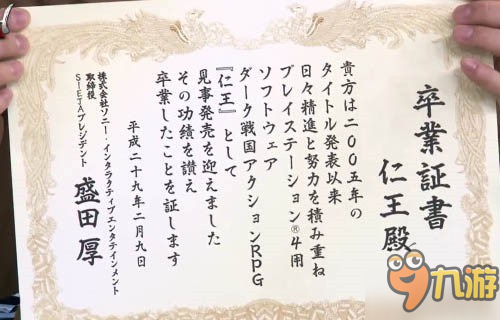 卒業証書
仁王殿
貴方は二〇〇五年の
タイトル発表以来
日々精進と努力を積み重ね
プレイステーション®4用
ソフトウェア
ダーク戦国アクションRPG
『仁王』として
見事発売を迎えました
その功績を讃え
卒業したことを証します
平成二十九年二月九日
株式会社ソニー・インタラクティブエンタテインメント
取締役
SIEJAプレジデント
盛田 厚
九游